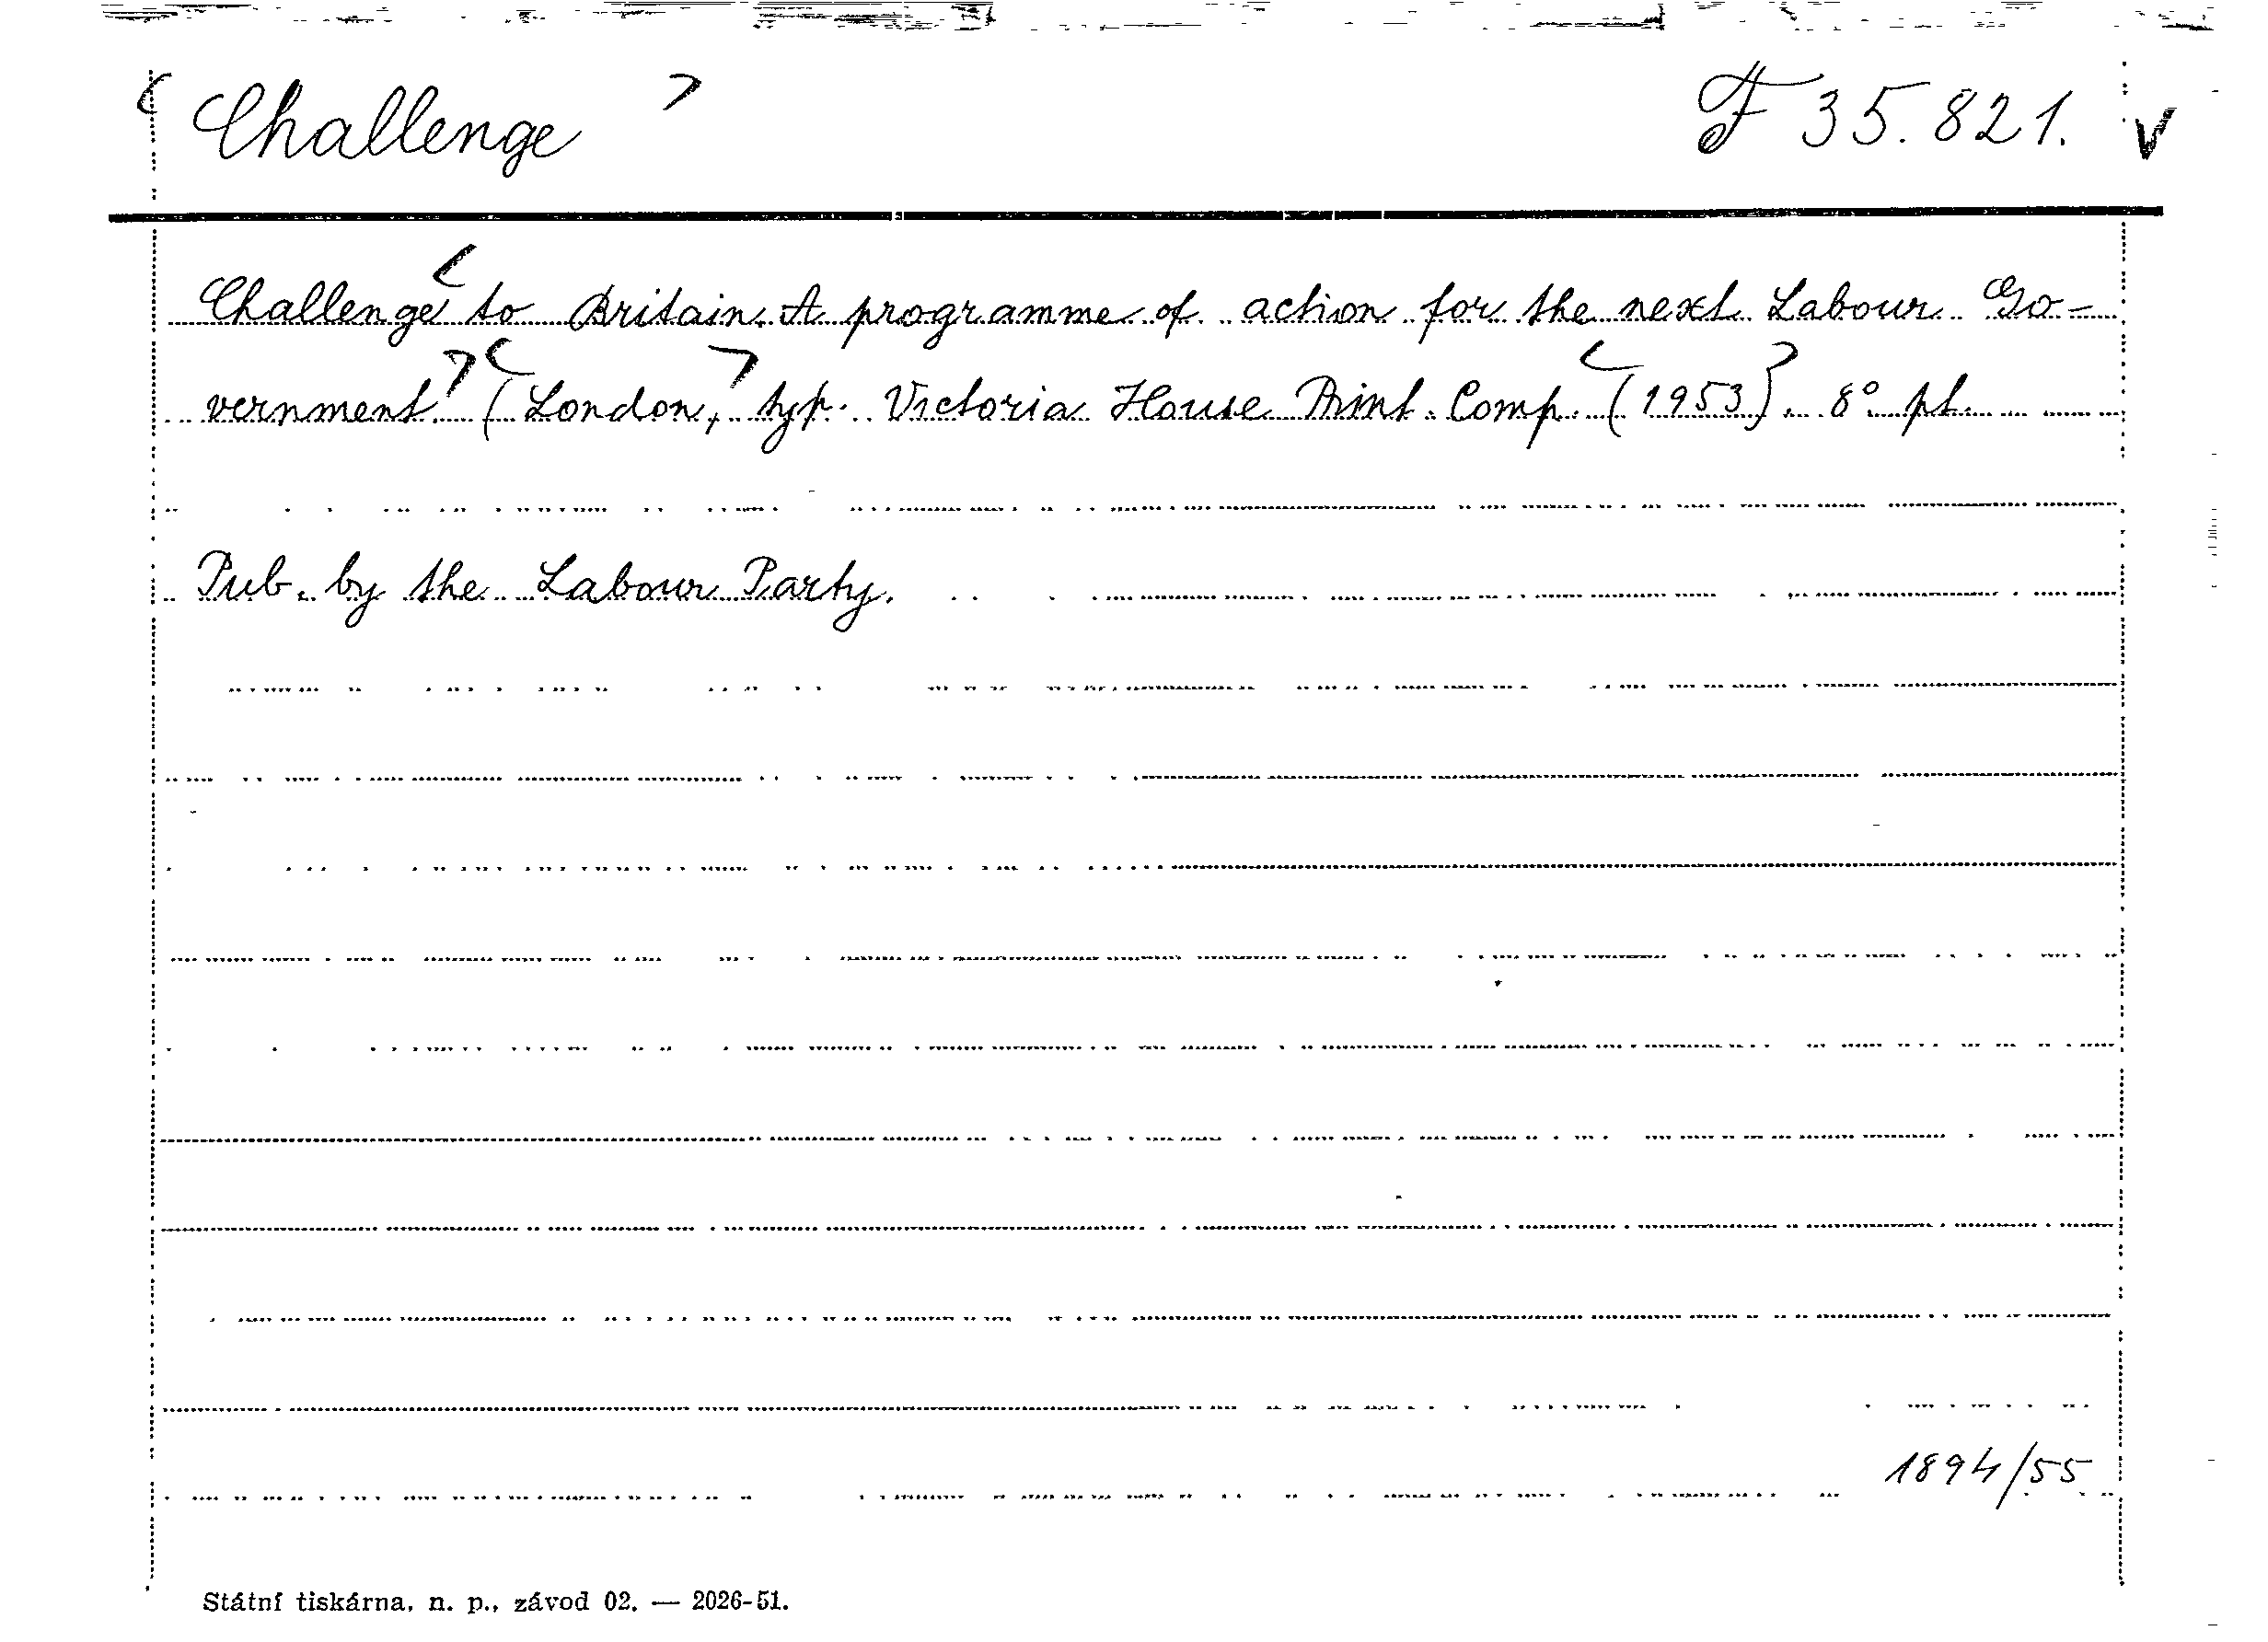 <Challenge> F 35.821. V
Challenge <to Britain. A programme of action for the next Labour Go-
vernment.> <(London,> typ. Victoria House Print. Comp. <(1953)>. 8° pt.
Pub. by the Labour Party.
1894/55
Státní tiskárna, n. p., závod 02. — 2026-51.